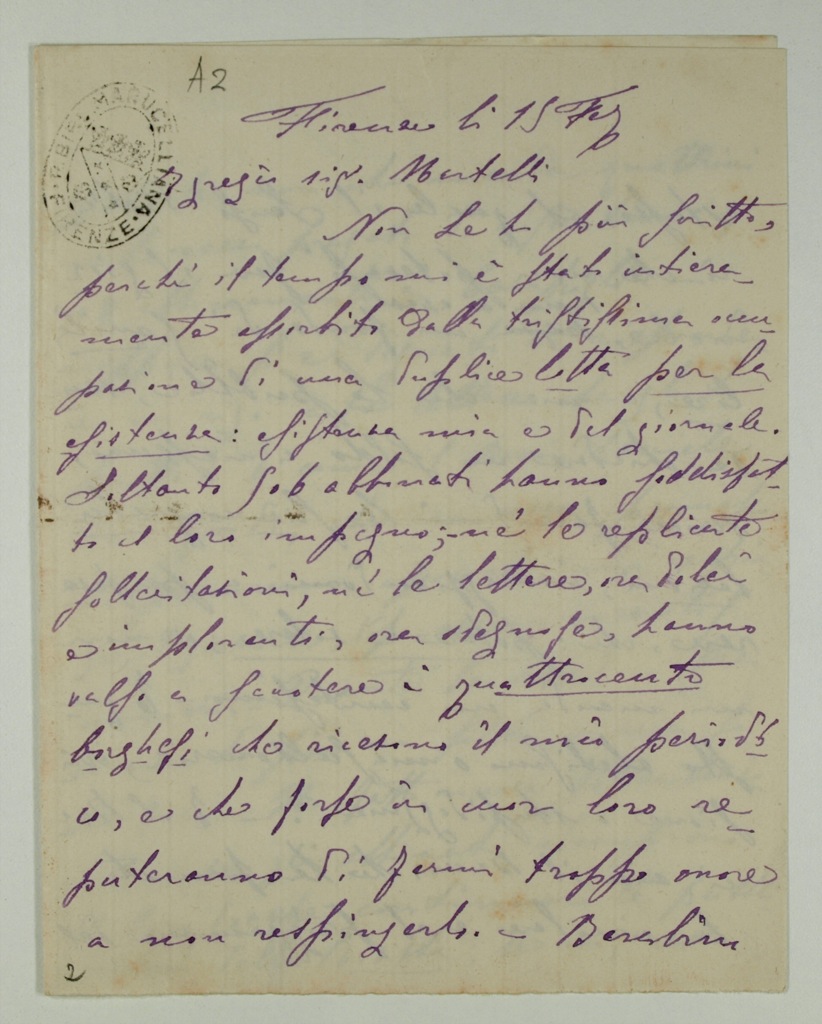 A2
R. BIBL. MARUCELLIANA. FIRENZE.
Firenze li 15
Egregio sig. Martelli
Non Le ho più scritto,
perché il tempo mi è stato intiera-
mente assorbito dalla tristissima occu-
pazione di una duplice lotta per la
esistenza: esistenza mia e del giornale.
Soltanto abbonati hanno soddisfat-
to il loro impegno; né le replicate
sollecitazioni, né le lettere, ora dolci
e imploranti, ora sdegnose, hanno
valso a scuotere i quattrocento
che ricevono il mio periodi-
co, e che forse in cuor loro re-
puteranno di farmi troppo onore
a non respingerlo. –
2